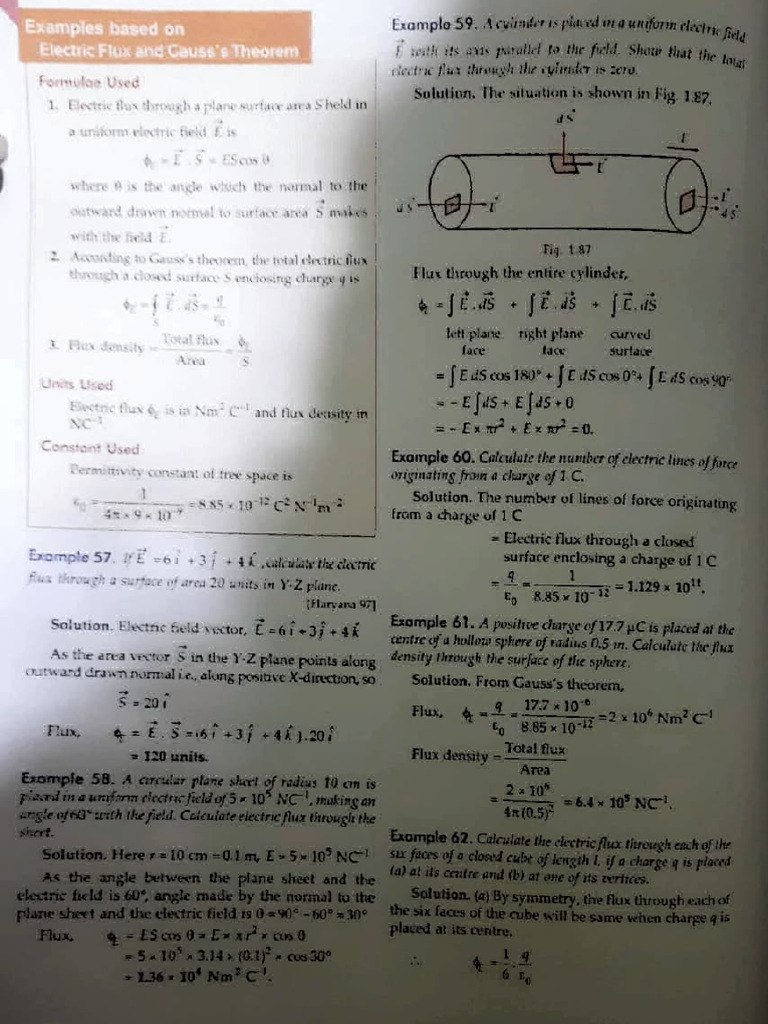 Examples based on
Electric Flux and Gauss's Theorem
Formulae Used
1. Electric flux through a plane surface area S held in
a uniform electric field E⃗ is
ϕ_E = E⃗ . S⃗ = ES cos θ
where θ is the angle which the normal to the
outward drawn normal to surface area S⃗ makes
with the field E⃗.
2. According to Gauss's theorem, the total electric flux
through a closed surface S enclosing charge q is
ϕ_E = ∮_S E⃗ . dS⃗ = q/ε₀
3. Flux density = Total flux / Area = ϕ_E / S
Units Used
Electric flux ϕ_E is in Nm² C⁻¹ and flux density in
NC⁻¹
Constant Used
Permittivity constant of free space is
ε₀ = 1 / (4π × 9 × 10⁻⁹) = 8.85 × 10⁻¹² C² N⁻¹ m⁻²
Example 57. If E⃗ = 6 î + 3 ĵ + 4 k̂, calculate the electric
flux through a surface of area 20 units in Y-Z plane.
[Haryana 97]
Solution. Electric field vector, E⃗ = 6 î + 3 ĵ + 4 k̂
As the area vector S⃗ in the Y-Z plane points along
outward drawn normal i.e., along positive X-direction, so
S⃗ = 20 î
Flux, ϕ_E = E⃗ . S⃗ = (6 î + 3 ĵ + 4 k̂) . 20 î
= 120 units.
Example 58. A circular plane sheet of radius 10 cm is
placed in a uniform electric field of 5 × 10⁵ NC⁻¹, making an
angle of 60° with the field. Calculate electric flux through the
sheet.
Solution. Here r = 10 cm = 0.1 m, E = 5 × 10⁵ NC⁻¹
As the angle between the plane sheet and the
electric field is 60°, angle made by the normal to the
plane sheet and the electric field is θ = 90° - 60° = 30°
Flux, ϕ_E = ES cos θ = E × πr² × cos θ
= 5 × 10⁵ × 3.14 × (0.1)² × cos 30°
= 1.36 × 10⁴ Nm² C⁻¹.
Example 59. A cylinder is placed in a uniform electric field
E⃗ with its axis parallel to the field. Show that the total
electric flux through the cylinder is zero.
Solution. The situation is shown in Fig. 1.87.
dS⃗
E⃗
E⃗
dS⃗
E⃗
E⃗
dS⃗
Fig. 1.87
Flux through the entire cylinder,
ϕ_E = ∫ E⃗ . dS⃗ + ∫ E⃗ . dS⃗ + ∫ E⃗ . dS⃗
left plane right plane curved
face face surface
= ∫ E dS cos 180° + ∫ E dS cos 0° + ∫ E dS cos 90°
= - E ∫ dS + E ∫ dS + 0
= - E × πr² + E × πr² = 0.
Example 60. Calculate the number of electric lines of force
originating from a charge of 1 C.
Solution. The number of lines of force originating
from a charge of 1 C
= Electric flux through a closed
surface enclosing a charge of 1 C
= q/ε₀ = 1 / (8.85 × 10⁻¹²) = 1.129 × 10¹¹.
Example 61. A positive charge of 17.7 μC is placed at the
centre of a hollow sphere of radius 0.5 m. Calculate the flux
density through the surface of the sphere.
Solution. From Gauss's theorem,
Flux, ϕ_E = q/ε₀ = 17.7 × 10⁻⁶ / 8.85 × 10⁻¹² = 2 × 10⁶ Nm² C⁻¹
Flux density = Total flux / Area
= 2 × 10⁶ / 4π (0.5)² = 6.4 × 10⁵ NC⁻¹.
Example 62. Calculate the electric flux through each of the
six faces of a closed cube of length l, if a charge q is placed
(a) at its centre and (b) at one of its vertices.
Solution. (a) By symmetry, the flux through each of
the six faces of the cube will be same when charge q is
placed at its centre.
∴ ϕ_E = 1/6 . q/ε₀